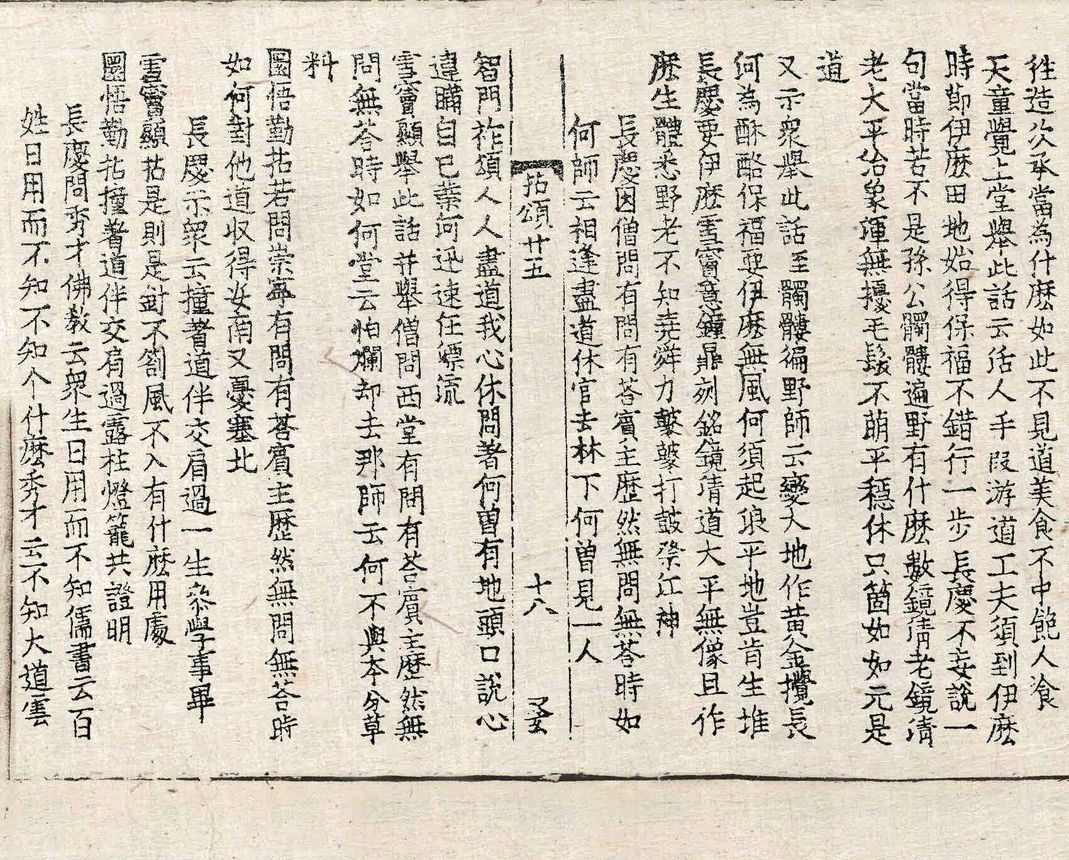 徃造次承當為什麽如此不見道美食不中飽人飡
天童覺上堂舉此話云活人手段游道工夫須到伊麽
時節伊麽田地始得保福不錯行一步長慶不妄說一
句當時若不是孫公髑髏遍野有什麽數鏡淸老鏡淸
老大平治象渾無擾毛髮不萠平穩休只箇如如元是
道
又示衆舉此話至髑髏徧野師云變大地作黃金攪長
何為酥酪保福要伊麽無風何須起浪平地豈肯生堆
長慶要伊麽雪竇意鐘鼎刻銘鏡淸道大平無像且作
麽生體悉野老不知堯舜力鼕鼕打皷祭江神
長慶因僧問有問有荅賓主歷然無問無荅時如
何師云相逢盡道休官去林下何曾見一人
拈頌廿五　十八
智門祚頌人人盡道我心休問著何曾有地頭口說心
違瞞自己業何迅速任漂流
雪竇顯舉此話幷舉僧問西堂有問有荅賓主歷然無
問無荅時如何堂云怕爛却去那師云何不與本分草
料
圜悟勤拈若問崇寧有問有荅賓主歷然無問無荅時
如何對他道收得安南又憂塞北
長慶示衆云撞著道伴交肩過一生叅學事畢
雪竇顯拈是則是針不劄風不入有什麽用處
圜悟勤拈撞著道伴交肩過露柱燈籠共證明
長慶問秀才佛敎云衆生日用而不知儒書云百
姓日用而不知不知个什麽秀才云不知大道雲